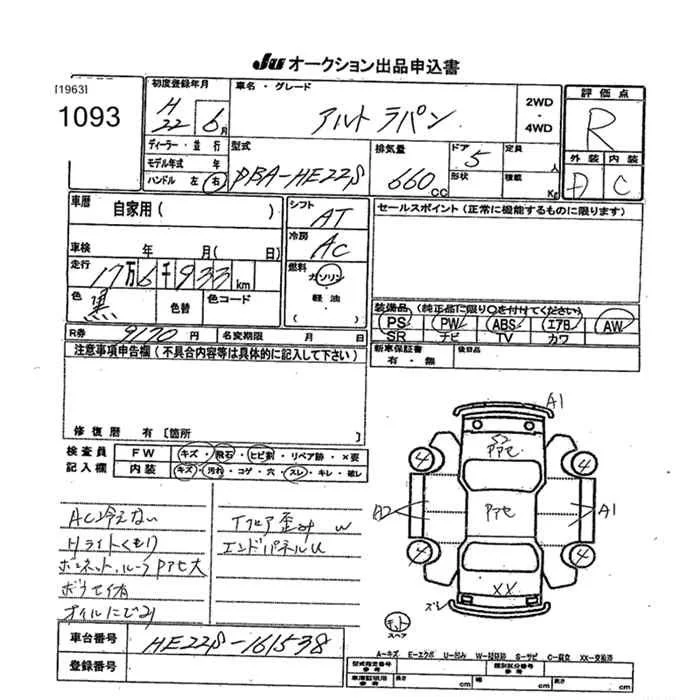 JU オークション出品申込書
[1963]
1093
初度登録年月
H22 6月
車名・グレード
アルト ラパン
2WD
・
4WD
評価点
R
外装 内装
D C
ディーラー・並行
モデル年式 年
ハンドル 左 右
型式
DBA-HE22S
排気量
660 CC
ドア
5
形状
定員
人
積載
Kg
車歴
自家用( )
車検 年 月( 日)
走行
17万6千933km
色
黒
色替
色コード
シフト
AT
冷房
AC
燃料
ガソリン
・
軽油
( )
セールスポイント(正常に機能するものに限ります)
装備品(純正品に限り○を付けてください)
PS PW ABS エアB AW
SR ナビ TV カワ
新車保証書
有・無
後日品
R券 9170円 名変期限 月 日
注意事項申告欄(不具合内容等は具体的に記入して下さい)
修復歴 有〔箇所 〕
検査員
記入欄
FW キズ・飛石・ヒビ割・リペア跡・×要
内装 キズ・汚れ・コゲ・穴・スレ・キレ・破レ
AC冷えない
Hライトくもり
ボンネット、ルーフPアセ大
オイルにじみ
エンドパネルU
A1
S2
Pアセ
4 4
A2
Pアセ
A1
4 4
XX
ズレ
スペア
車台番号 HE22S-161538
登録番号
A-キズ E-エクボ U-凹み W-補修跡 S-サビ C-腐食 XX-交換済
型式指定番号
類別区分番号
車庫証明用
長さ cm
幅 cm
高さ cm